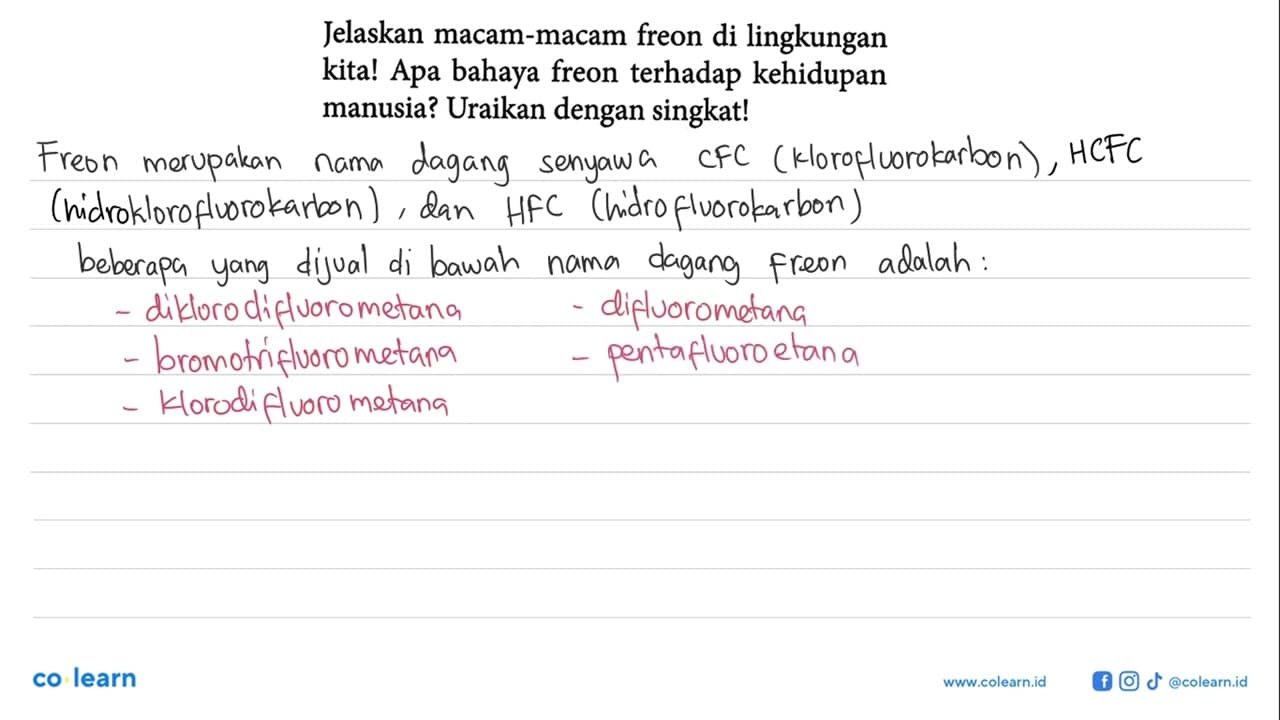 Jelaskan macam-macam freon di lingkungan
kita! Apa bahaya freon terhadap kehidupan
manusia? Uraikan dengan singkat!
Freon merupakan nama dagang senyawa CFC (klorofluorokarbon), HCFC
(hidroklorofluorokarbon), dan HFC (hidrofluorokarbon)
beberapa yang dijual di bawah nama dagang freon adalah:
- diklorodifluorometana
- bromotrifluorometana
- klorodifluorometana
- difluorometana
- pentafluoroetana
co learn
www.colearn.id
@colearn.id